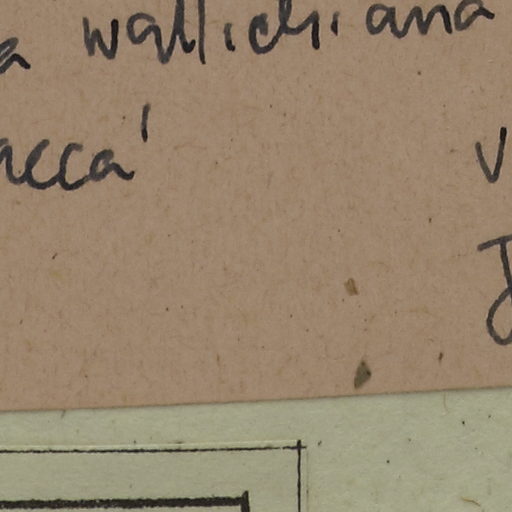 a wallichiana
acca' V
J